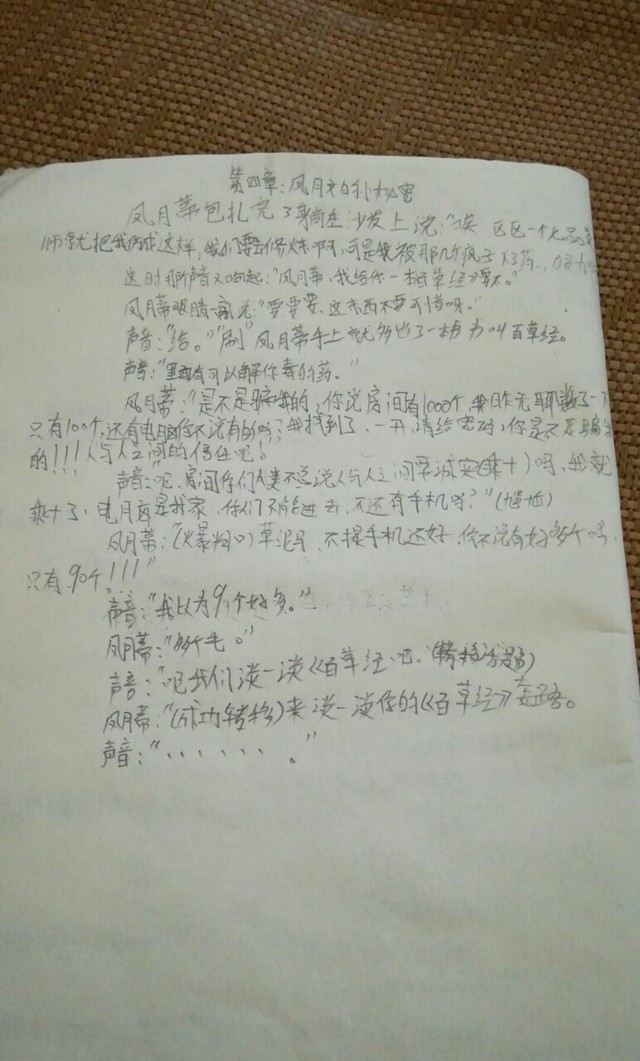 第四章:凤月初的秘密
凤月幕包扎完了躺在沙发上说:"唉 区区一个
师就把我伤成这样,我们要去修炼啊,可是我被那几个疯子下了药
这时那声音又响起:"凤月幕,我给你一本百草经要不。"
凤月幕眼睛一亮说:"要要要、这东西不要可惜呀。"
声音:"给。""刷"凤月幕手上就多出了一本书名叫百草经。
声音:"里面有可以解你毒的药。"
凤月幕:"是不是骗我的,你说房间有1000个,我昨天无聊数了一下
只有100个,还有电脑你不说有的吗?我找到了、一开,请给密码,你是不是骗
的!!!人与人之间的信任呢!
声音:"呃、房间你们人类不总说人与人之间要诚实(乘十)吗,我就
乘十了,电脑是我家,你们不能进去,不还有手机吗?"(尴尬)
凤月幕:"(火爆翔)草泥马,不提手机还好,你不说有好多个吗,
只有90个!!!"
声音:"我以为9个好多。"
凤月幕:"多个毛。"
声音:"呃我们谈一谈《百草经吧。(转移话题)
凤月幕:"(成功转移)来谈一谈你的《百草经》套路。
声音:"、、、、、、。"